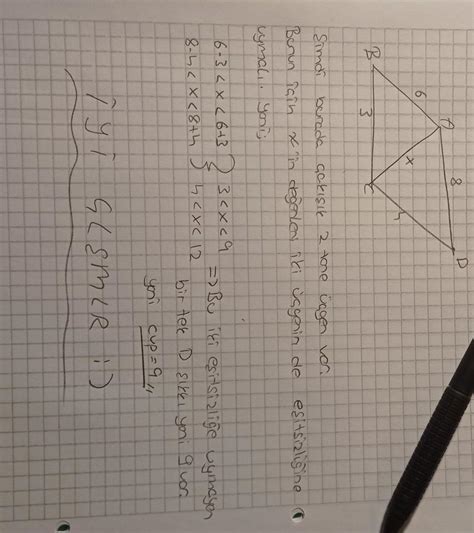 A
6
8
B
x
D
3
C
4
Şimdi burada çakışık 2 tane üçgen var.
Bunun için x'in değerleri iki üçgenin de eşitsizliğine
uymalı. yani;
6-3<x<6+3 } 3<x<9 => Bu iki eşitsizliğe uymayan
8-4<x<8+4 } 4<x<12 bir tek D şıkkı yani 9 var.
yani cvp=9,,
iyi GÜSMLR :)